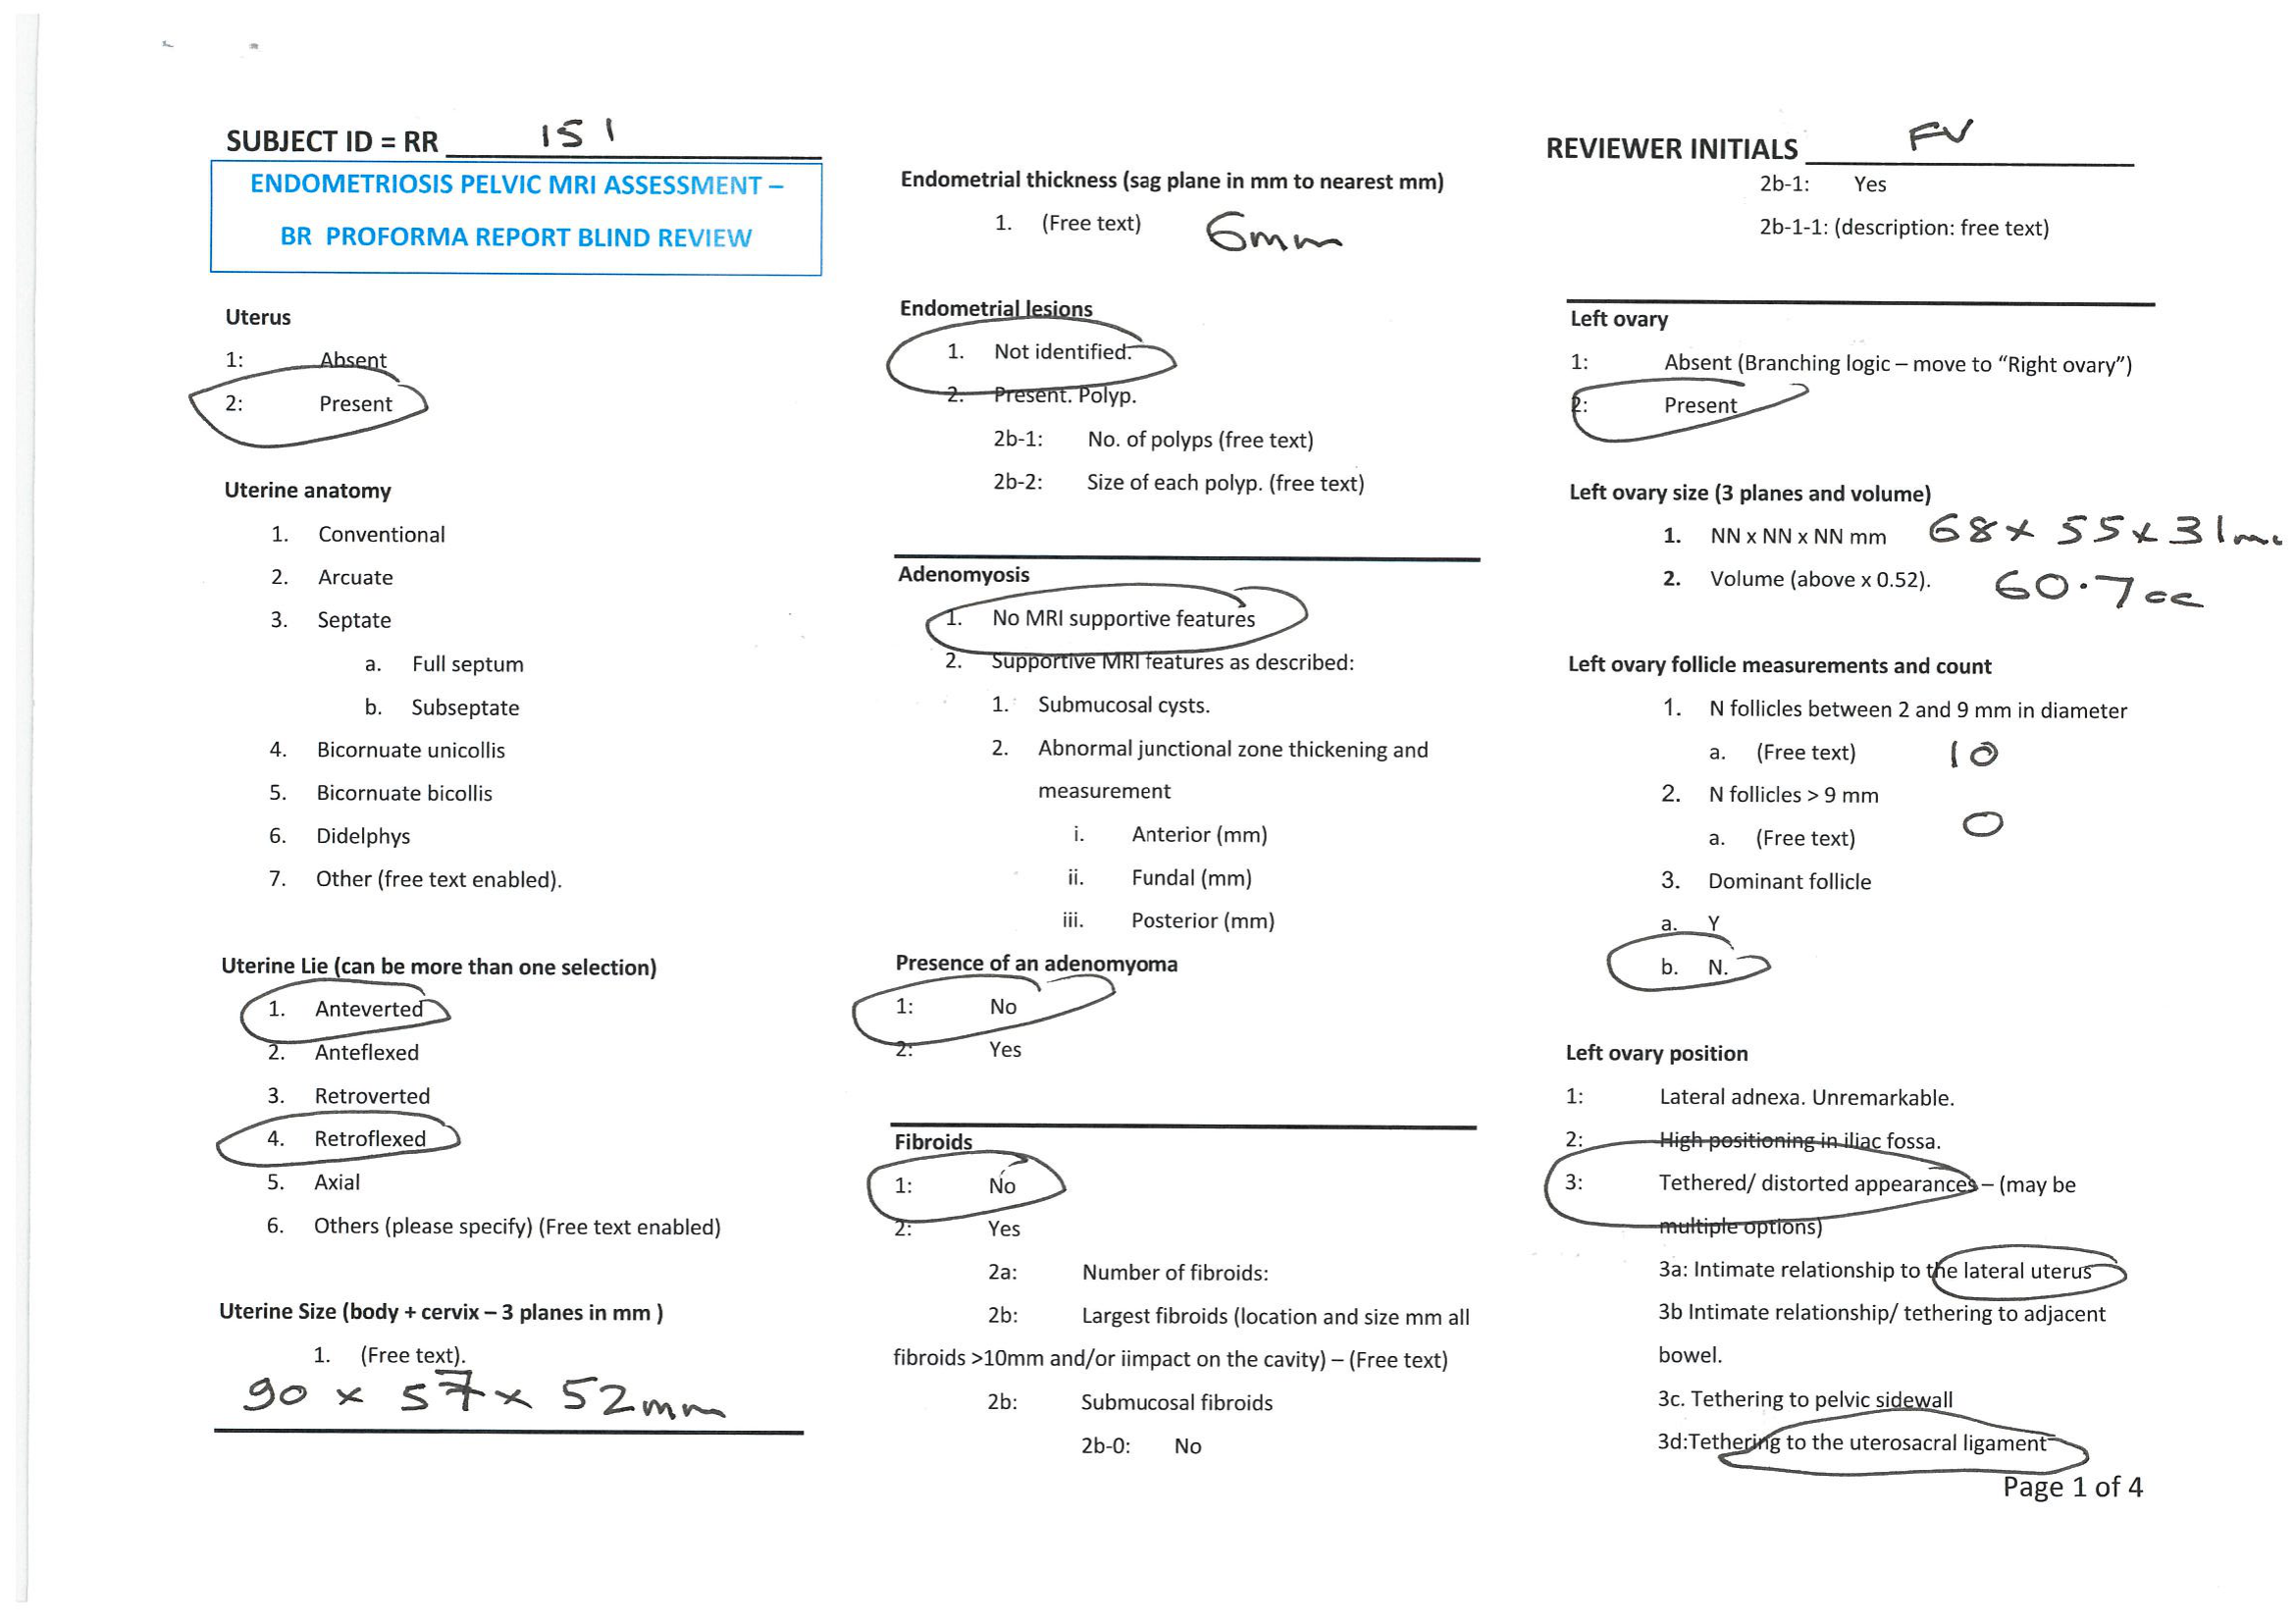 SUBJECT ID = RR 151
ENDOMETRIOSIS PELVIC MRI ASSESSMENT –
BR PROFORMA REPORT BLIND REVIEW
Uterus
1: Absent
2: Present
Uterine anatomy
1. Conventional
2. Arcuate
3. Septate
a. Full septum
b. Subseptate
4. Bicornuate unicollis
5. Bicornuate bicollis
6. Didelphys
7. Other (free text enabled).
Uterine Lie (can be more than one selection)
1. Anteverted
2. Anteflexed
3. Retroverted
4. Retroflexed
5. Axial
6. Others (please specify) (Free text enabled)
Uterine Size (body + cervix – 3 planes in mm )
1. (Free text).
90 x 57 x 52mm
Endometrial thickness (sag plane in mm to nearest mm)
1. (Free text) 6mm
Endometrial lesions
1. Not identified.
2. Present. Polyp.
2b-1: No. of polyps (free text)
2b-2: Size of each polyp. (free text)
Adenomyosis
1. No MRI supportive features
2. Supportive MRI features as described:
1. Submucosal cysts.
2. Abnormal junctional zone thickening and
measurement
i. Anterior (mm)
ii. Fundal (mm)
iii. Posterior (mm)
Presence of an adenomyoma
1: No
2: Yes
Fibroids
1: No
2: Yes
2a: Number of fibroids:
2b: Largest fibroids (location and size mm all
fibroids >10mm and/or iimpact on the cavity) – (Free text)
2b: Submucosal fibroids
2b-0: No
REVIEWER INITIALS FV
2b-1: Yes
2b-1-1: (description: free text)
Left ovary
1: Absent (Branching logic – move to “Right ovary”)
2: Present
Left ovary size (3 planes and volume)
1. NN x NN x NN mm 68 x 55 x 31mm
2. Volume (above x 0.52). 60.7cc
Left ovary follicle measurements and count
1. N follicles between 2 and 9 mm in diameter
a. (Free text) 10
2. N follicles > 9 mm
a. (Free text) 0
3. Dominant follicle
a. Y
b. N.
Left ovary position
1: Lateral adnexa. Unremarkable.
2: High positioning in iliac fossa.
3: Tethered/ distorted appearances – (may be
multiple options)
3a: Intimate relationship to the lateral uterus
3b Intimate relationship/ tethering to adjacent
bowel.
3c. Tethering to pelvic sidewall
3d:Tethering to the uterosacral ligament
Page 1 of 4